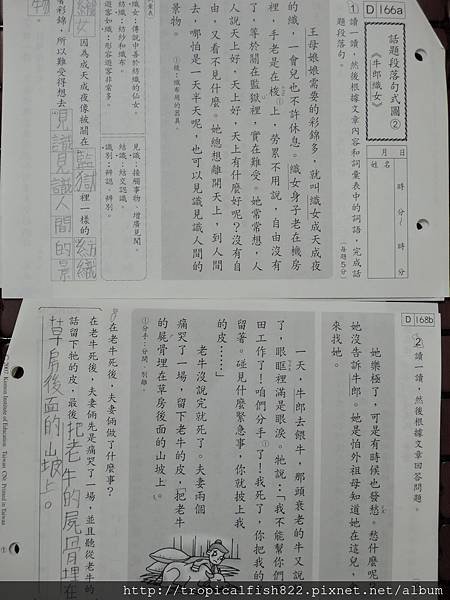 D166a
話題段落句式圖②
《牛郎織女》
月 日
姓名
時 分~ 時 分
1 讀一讀，然後根據文章內容和詞彙表中的詞語，完成話
題段落句。
(每題5分)
王母娘娘需要的彩錦多，就叫織女成天成夜
的織，一會兒也不許休息。織女身子老在機房
裡，手老是在梭①上，勞累不用說，自由沒有
了，等於關在監獄裡，實在難受。她常常想，人
人說天上好，天上好，天上有什麼好呢？沒有自
由，又看不見什麼。她總想離開天上，到人間
去，哪怕是一天半天呢，也可以見識見識人間的
景物。
①梭：織布用的器具。
織女：傳說中善於紡織的仙女。
紡織：紡紗和織布。
遊客如織：形容遊客非常多。
見識：接觸事物，增廣見聞。
結識：結交認識。
識別：辨認、辨別。
織女因為成天成夜像被關在監獄裡一樣的紡織
著彩錦，所以難受得想去見識見識人間的景
物
D168b
2 讀一讀，然後根據文章回答問題。
她樂極了，可是有時候也發愁。愁什麼呢？
她沒告訴牛郎。她是怕外祖母知道她在這兒，
來找她。
一天，牛郎去餵牛，那頭衰老的牛又說
了，眼眶裡滿是眼淚。牠說：「我不能幫你們
田工作了！咱們分手①了！我死了，你把我的
留著。碰見什麼緊急事，你就披上我
的皮……」
老牛沒說完就死了。夫妻兩個
痛哭了一場，留下老牛的皮，把老牛
的屍骨埋在草房後面的山坡上。
①分手：分開、別離。
在老牛死後，夫妻倆做了什麼事？
在老牛死後，夫妻倆先是痛哭了一場，並且聽從老牛的
話留下牠的皮，最後把老牛的屍骨埋在
草房後面的山坡上。
©2007 Kumon Institute of Education Taiwan (CN) Printed in Taiwan
http://tropicalfish822.pixnet.net/album